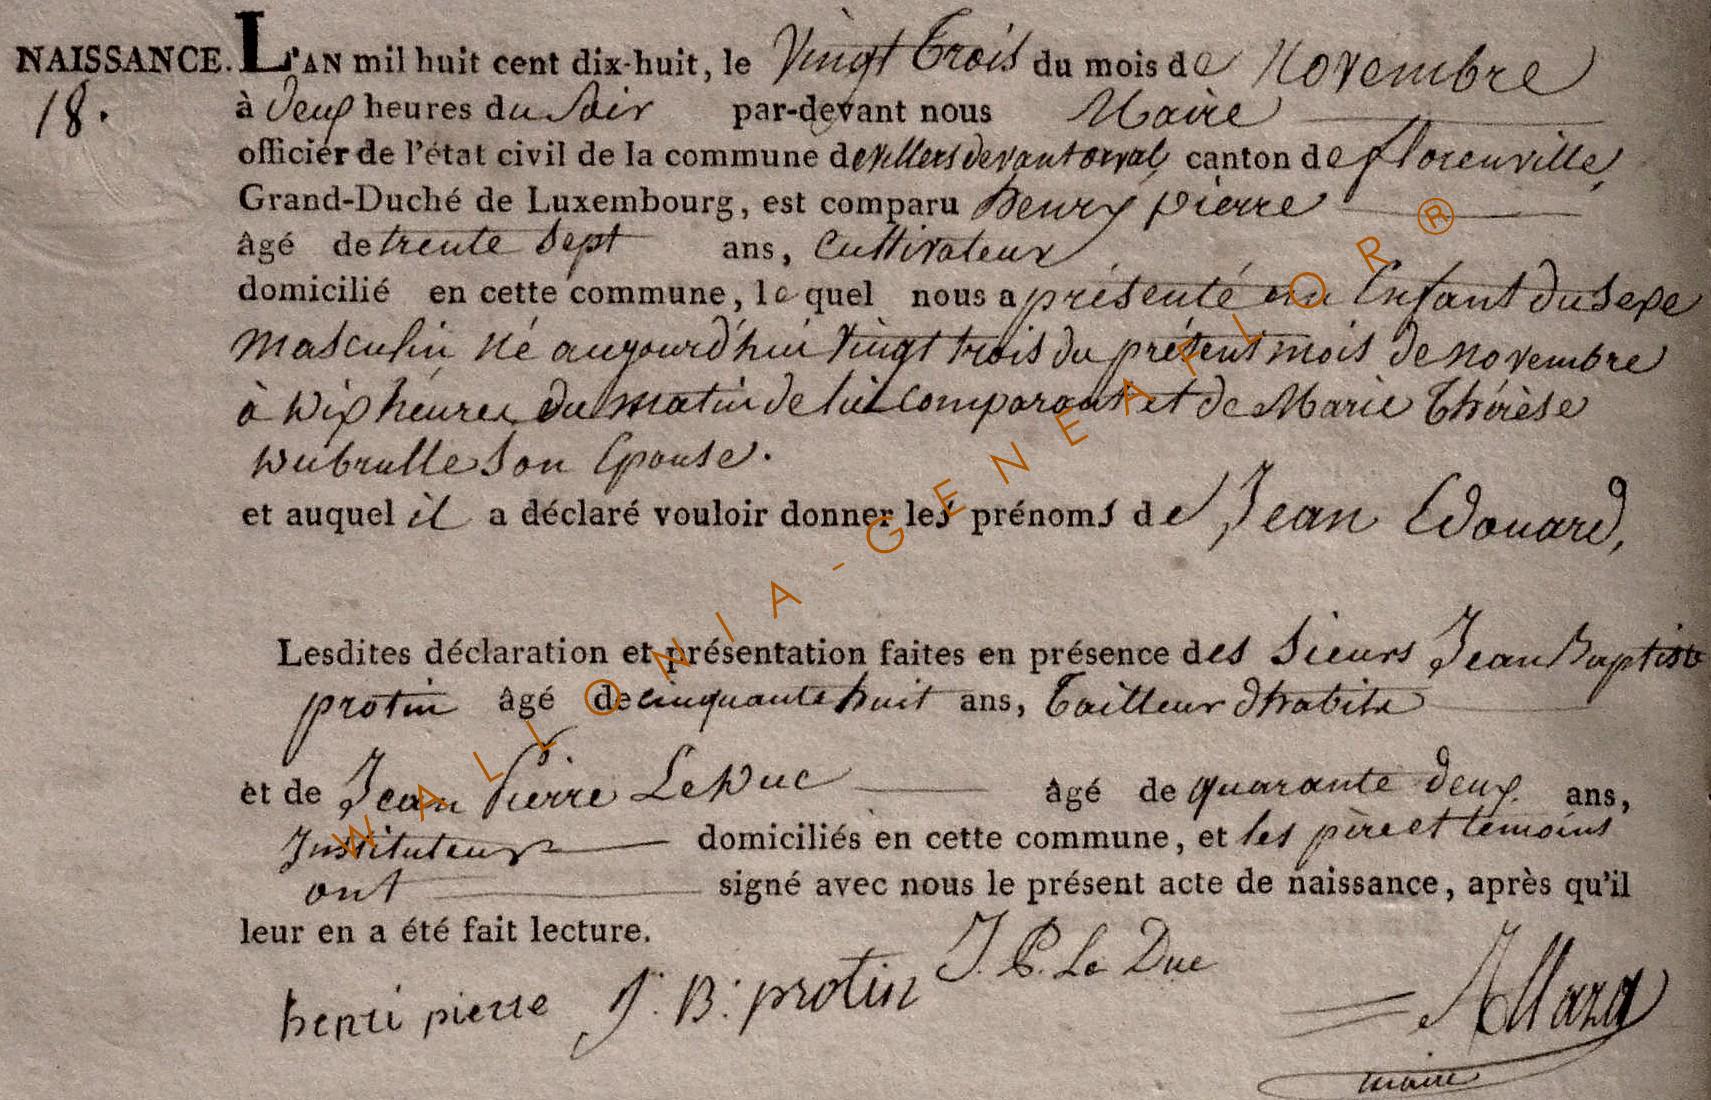 NAISSANCE. L'AN mil huit cent dix-huit, le Vingt Trois du mois de Novembre
18. à deux heures du Soir par-devant nous Maire
officier de l'état civil de la commune de villers devant orval, canton de florenville,
Grand-Duché de Luxembourg, est comparu henry pierre
âgé de trente Sept ans, Cultivateur
domicilié en cette commune, lequel nous a présenté un Enfant du Sexe
Masculin né aujourd'hui Vingt trois du présent mois de novembre
à Dix heures du matin de lui Comparant et de Marie Thérèse
Son Epouse.
et auquel il a déclaré vouloir donner les prénoms de Jean Edouard,
Lesdites déclaration et présentation faites en présence des Sieurs Jean Baptiste
protin âgé de cinquante huit ans, Tailleur dhabits
et de Jean Pierre LeDuc âgé de quarante deux ans,
Instituteur domiciliés en cette commune, et les père et témoins
ont signé avec nous le présent acte de naissance, après qu'il
leur en a été fait lecture.
henri pierre J. B: protin J. P. Le Duc
maire
WALLONIA-GENEAFLOR®